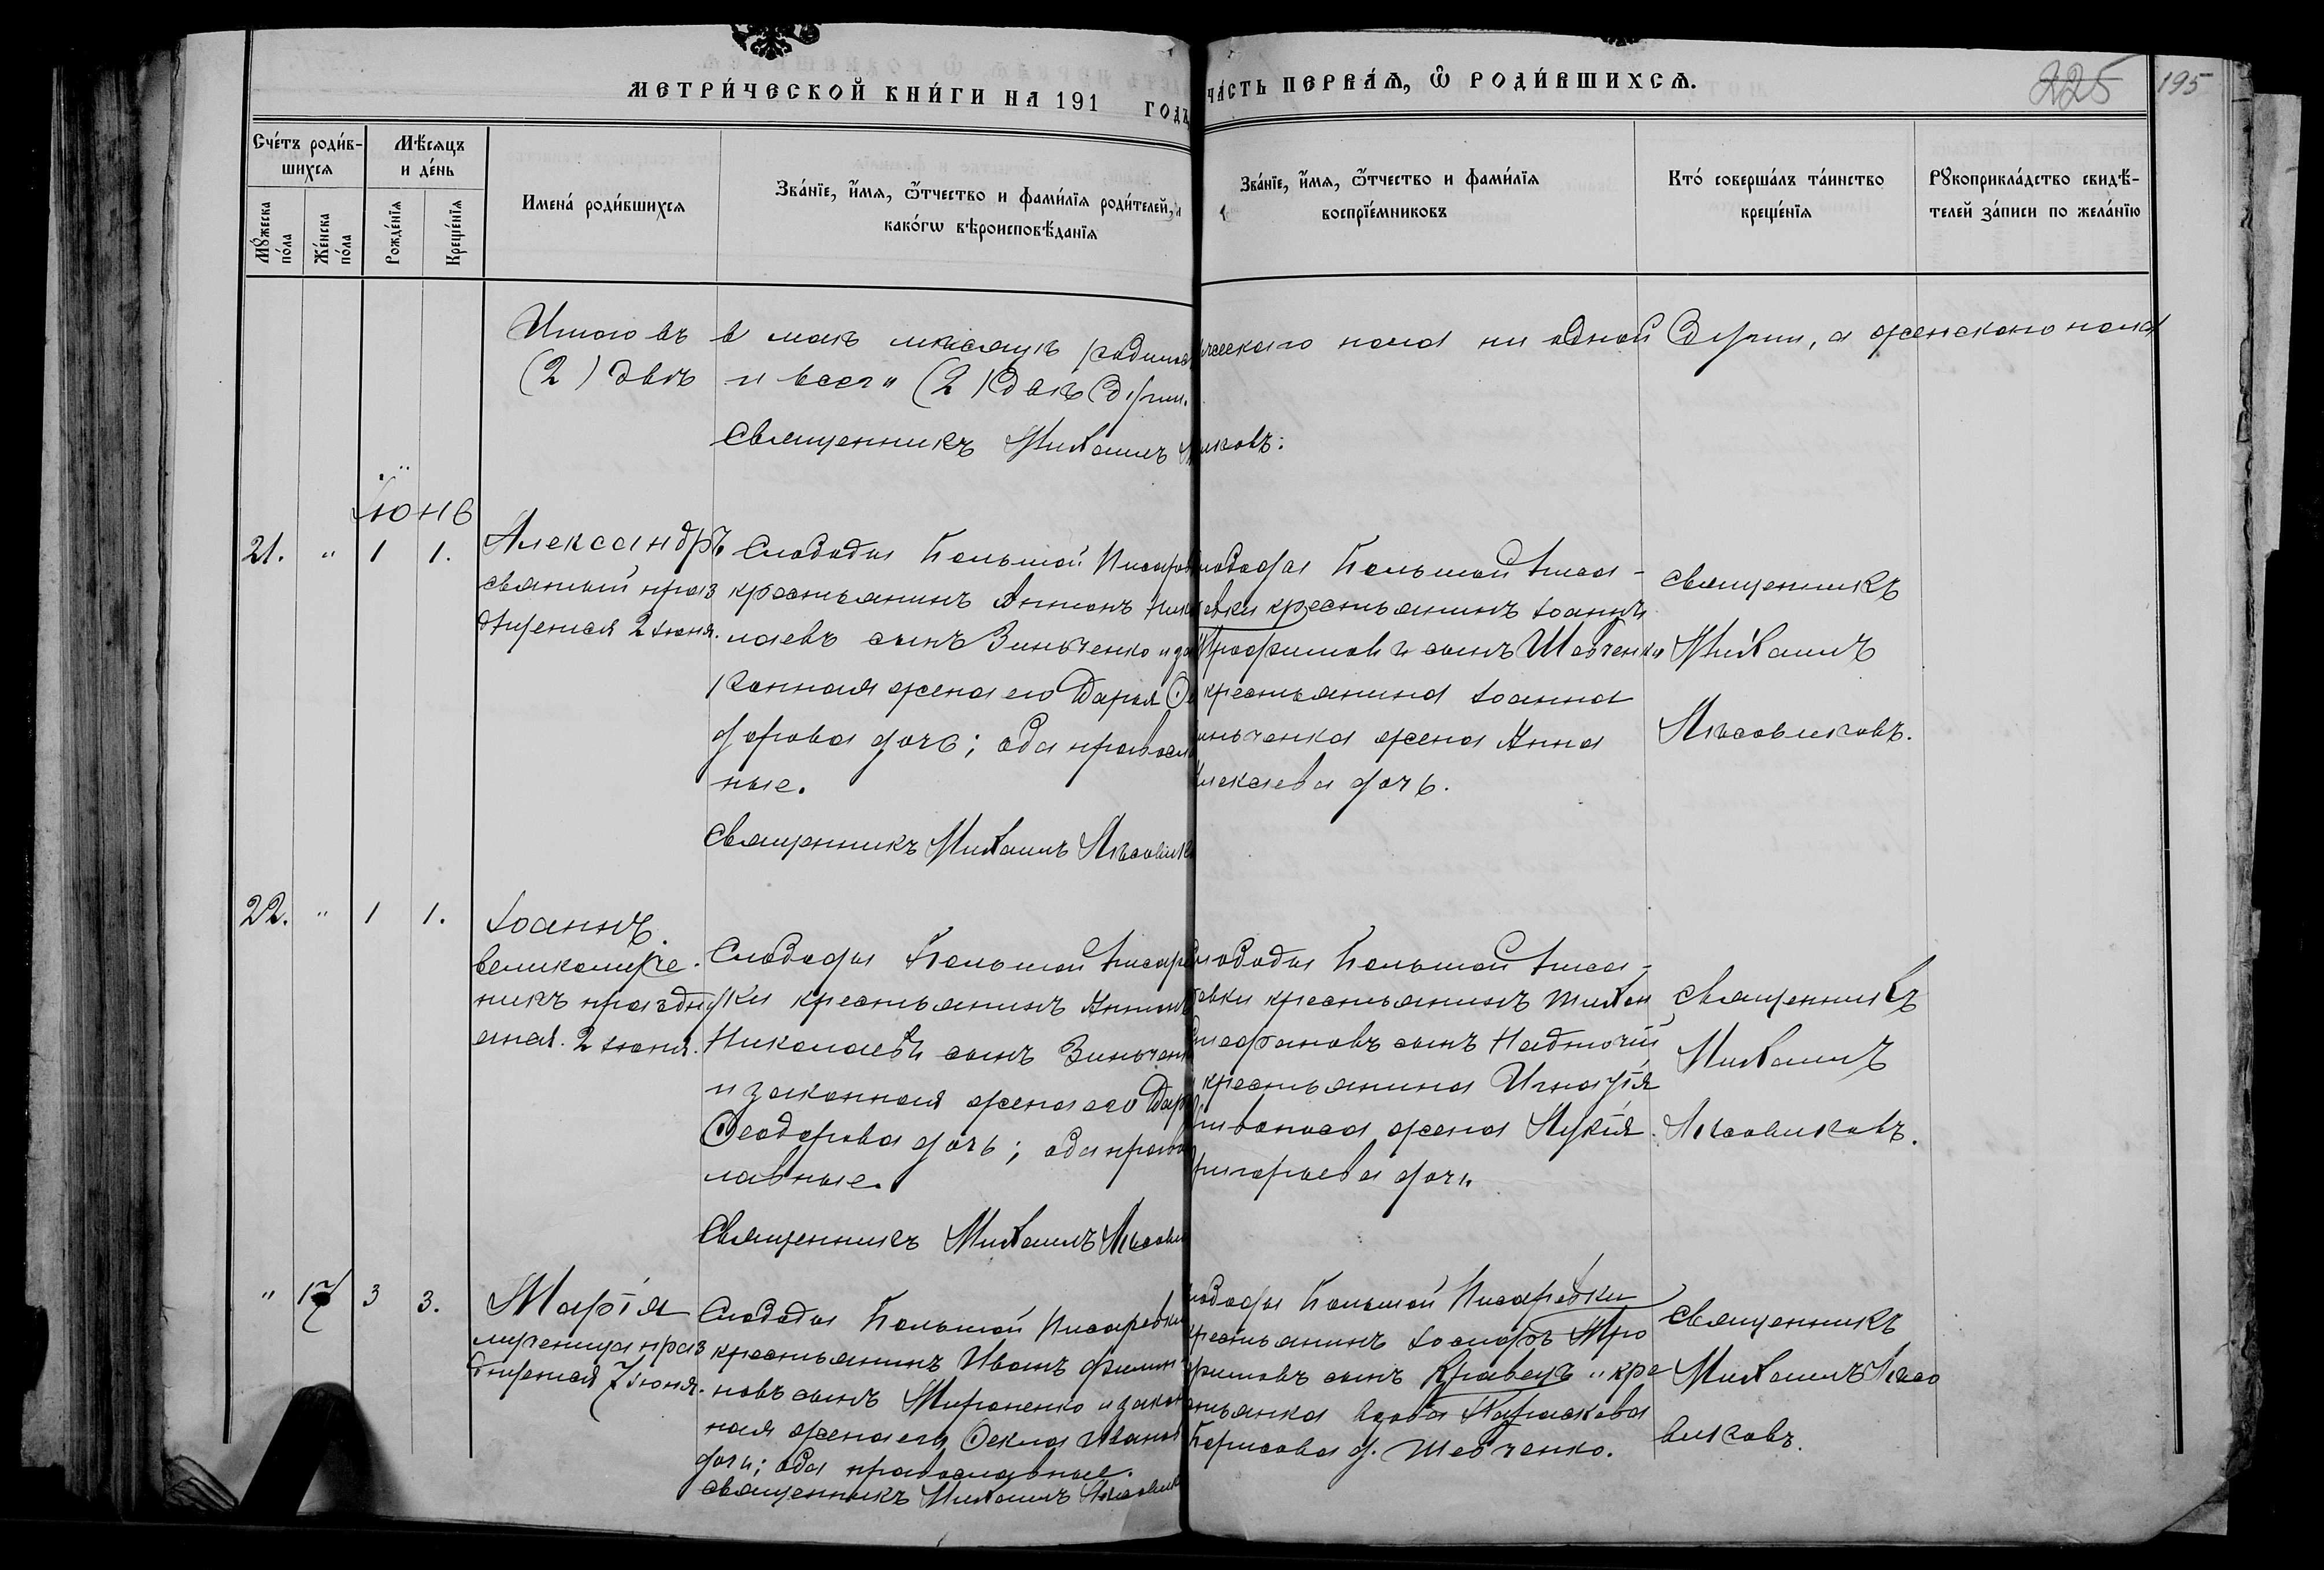 МЕТРИ́ЧЕСКОЙ КНИ́ГИ НА 191 ГОДЪ
ЧА́СТЬ ПЕРВА́Ѧ, Ѽ РОДИ́ВШИХСѦ.
225 195
Сче́тъ роди́в-
шихсѧ
Мѣ́сѧцъ
и де́нь
Мꙋ́жеска
по́ла
Же́нска
по́ла
Рожде́нїѧ
Креще́нїѧ
Имена́ роди́вшихсѧ
Зва́нїе, и҆́мѧ, ѻ҆́тчество и фами́лїѧ роди́телей, и
како́гѡ вѣроисповѣ́данїѧ
Зва́нїе, и҆́мѧ, ѻ҆́тчество и фами́лїѧ
воспрїе́мниковъ
Кто́ соверша́лъ та́инство
креще́нїѧ
Рꙋкоприкла́дство свидѣ́-
телей за́писи по жела́нїю
Итого въ в маѣ мѣсяцѣ ческаго пола ни одной души, а женскаго пола
(2) двѣ и всего (2) двѣ души.
Священникъ Михаилъ
Іюнь
21. " 1 1.
Александръ
святый праз
днуется 2 Іюня.
Слободы Большой Писаров
крестьянинъ Антонъ Нико
лаевъ сынъ Зинченко и за
конная жена его Дарья Ѳе
дорова дочь; оба правосл
ные.
Священникъ Михаилъ Лѣсовик
лободы Большой Писа-
ревки крестьянинъ Іоаннъ
Трофимовъ сынъ Шевченко
крестьянина Іоанна
инченка жена Анна
Алексѣева дочь.
Священникъ
Михаилъ
Лѣсовиковъ.
22. " 1 1.
Іоаннъ.
великомуче
никъ праздну
ется. 2 Іюня.
Слободы Большой Писаре
вки крестьянинъ Антонъ
Николаевъ сынъ Зинчен
и законная жена его Дар
Ѳеодорова дочь; оба право
лавные.
Священникъ Михаилъ Лѣсови
лободы Большой Писа-
ревки крестьянинъ Тихон
сынъ Надточій
крестьянина Игнатія
жена Лукія
ригорьева дочь.
Священникъ
Михаилъ
Лѣсовиковъ.
" 17 3 3.
Марія
мученица праз
днуется 7 Іюня.
Слободы Большой Писаревки
крестьянинъ Иванъ Филип
повъ сынъ Мироненко и закон
ная жена его Ѳекла Иванов
дочь; оба православные.
Священникъ Михаилъ Лѣсовик
лободы Большой Писаревки
крестьянинъ Іосифъ Тро
фимовъ сынъ Кравецъ и кре
стьянка вдова Параскева
Борисова д. Шевченко.
Священникъ
Михаилъ Лѣсо
виковъ.